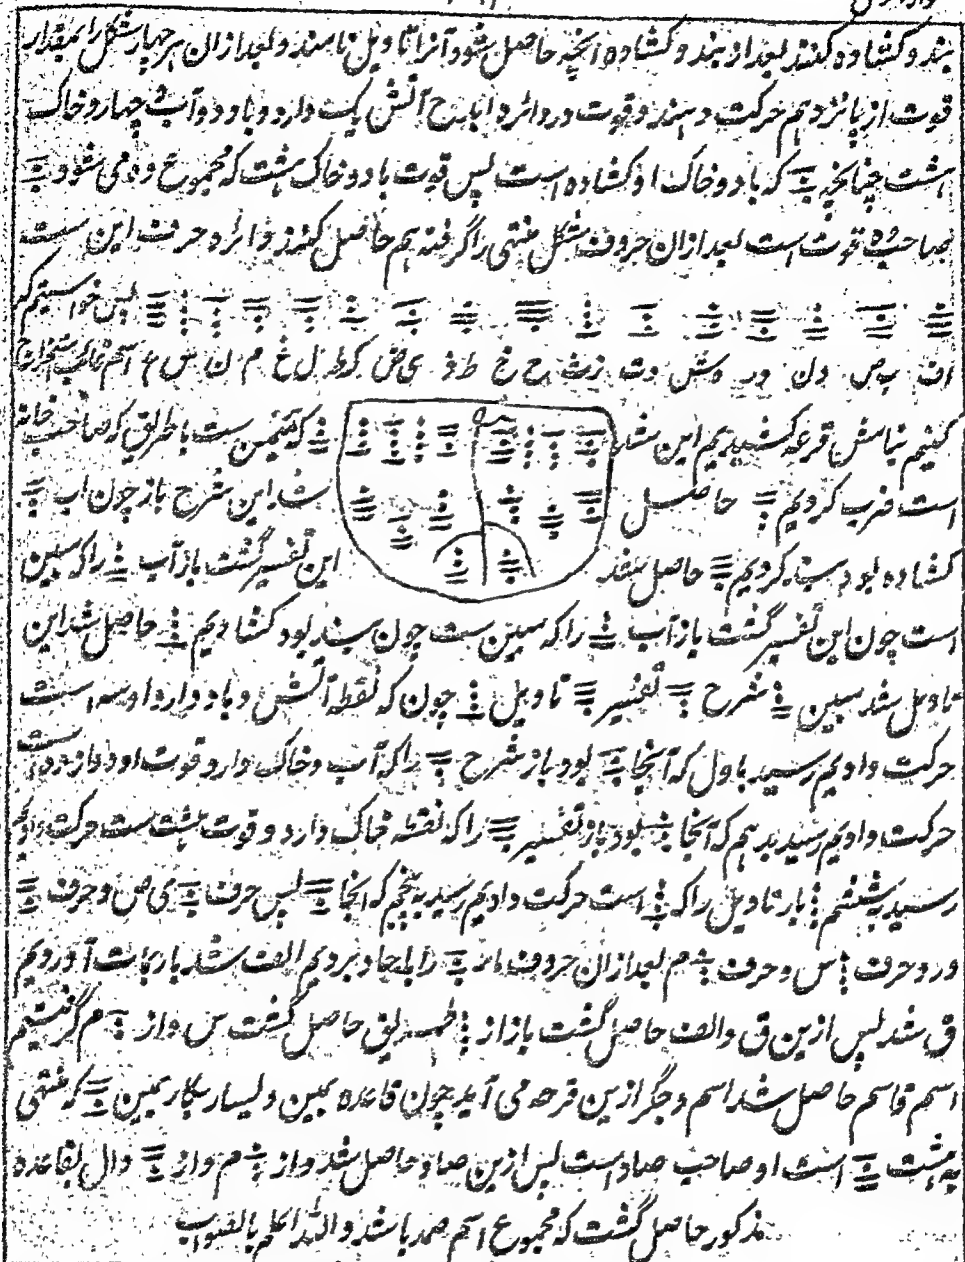 بند و کشاده کنند بعد از بند و کشاده انچه حاصل شود آنرا تاویل نامند و بعد ازان هر چهار شکل را بمقدار
قوت از پانزدهم حرکت دهند و قوت در دائره ابدح آتش یک دارد و باد دو آب چهار و خاک
هشت چنانچه که باد و خاک او کشاده است پس قوت باد دو خاک هشت که مجموع ده می شود
صاحب ده قوت است بعد ازان حروف شکل منتهی را گرفته اسم حاصل کنند و دائره حرف این ست
پس خواستیم که
ا ف ب ص د ن و ر ه ش و ت ز ث ح خ ط ذ ی ض ک ظ ل غ م ن س ع اسم طالب استخراج
کنیم بنامش قرعه کشیدیم این شد که یمین ست باطریق که صاحب خانه
است ضرب کردیم حاصل شد این شرح باز چون آب
کشاده بود بند کردیم حاصل شد این تفسیر گشت باز آب را که یمین
است چون این تفسیر گشت باز آب را که یمین ست چون بند بود کشادیم حاصل شد این
تاویل شد یمین شرح تفسیر تاویل چون که نقطه آتش و باد دارد او سه است
حرکت دادیم رسید باول که آنجا بود باز شرح را که آب و خاک دارد قوت او دوازده است
حرکت دادیم رسید بدهم که آنجا بود باز تفسیر را که نقطه خاک دارد و قوت هشت ست حرکت دادیم
رسید بششم باز تاویل را که است حرکت دادیم رسید به پنجم که آنجا پس حرف ی ض و حرف
و ر و حرف س و حرف م بعد ازان حروف را بابجد بردیم الف شد باربات آوردیم
ق شد پس ازین ق و الف حاصل گشت باز از بطریق حاصل گشت س و از م گرفتیم
اسم قاسم حاصل شد اسم دیگر ازین قرعه می آید چون قاعده یمین و یسار بکار یمین که منتهی
به هشت است او صاحب صاد است پس ازین صاد حاصل شد و از م و از دال بقاعده
مذکور حاصل گشت که مجموع اسم صمد باشد والله اعلم بالصواب